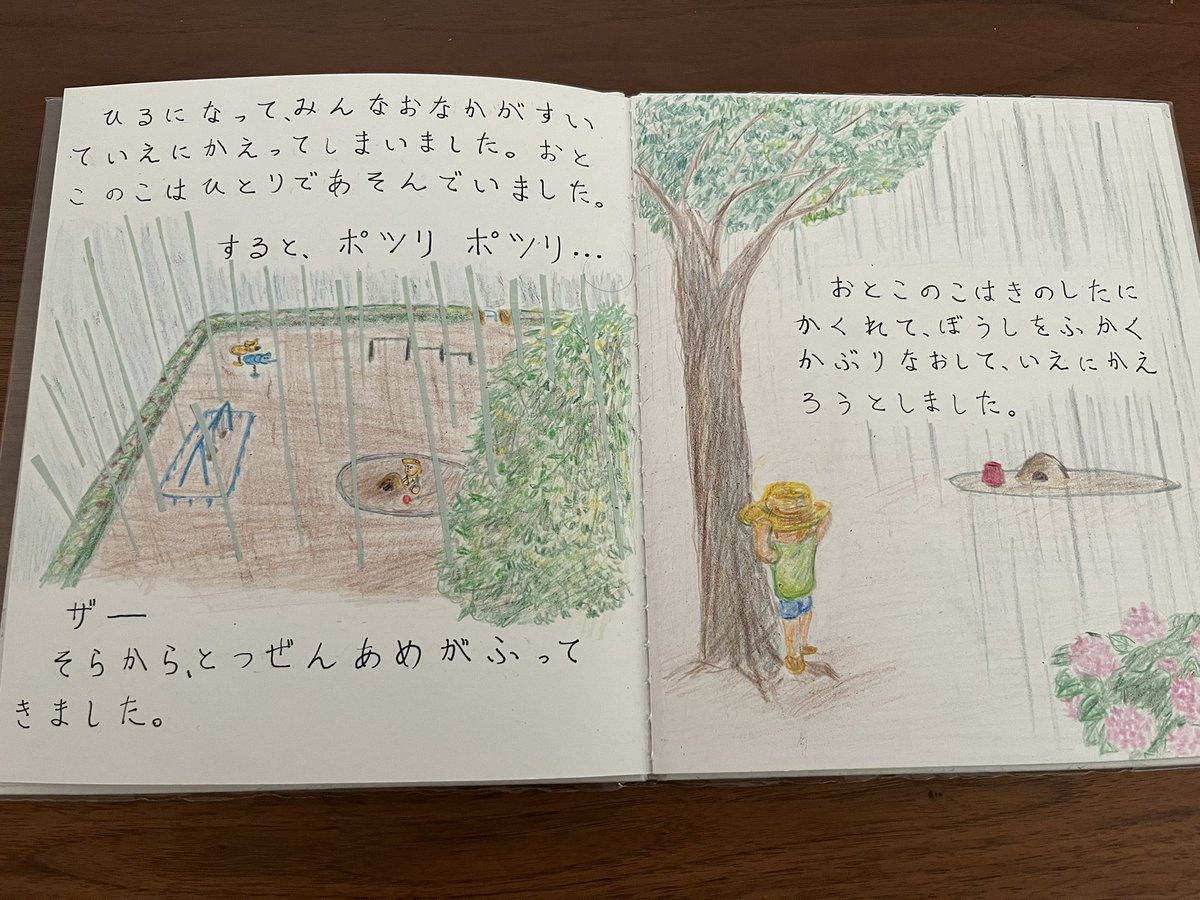 ひるになって、みんなおなかがすい
ていえにかえってしまいました。おと
このこはひとりであそんでいました。
すると、ポツリ ポツリ…
ザー
そらから、とつぜんあめがふって
きました。
おとこのこはきのしたに
かくれて、ぼうしをふかく
かぶりなおして、いえにかえ
ろうとしました。